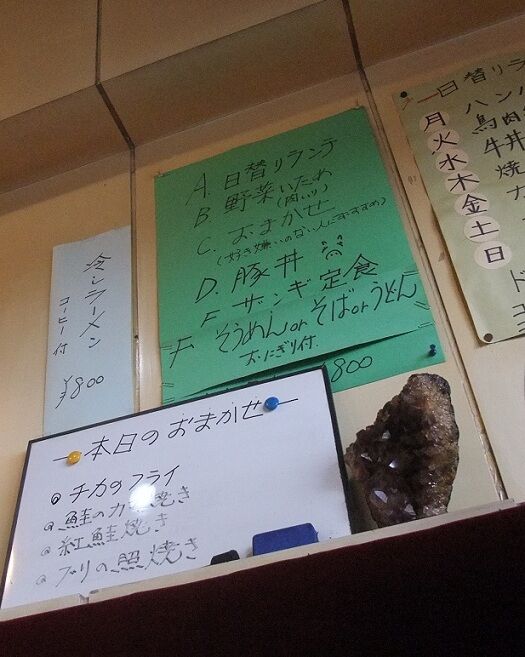 冷しラーメン
コーヒー付
¥800
A. 日替りランチ
B. 野菜いため
(肉入り)
C. おまかせ
(好き嫌いのない人におすすめ)
D. 豚丼
E ザンギ定食
F そうめんorそばorうどん
おにぎり付
¥800
本日のおまかせ
チカのフライ
鮭の
紅鮭焼き
ブリの照焼き
一日替りラン
月 ハン
火 鳥肉
水 牛丼
木 焼
金
土
日